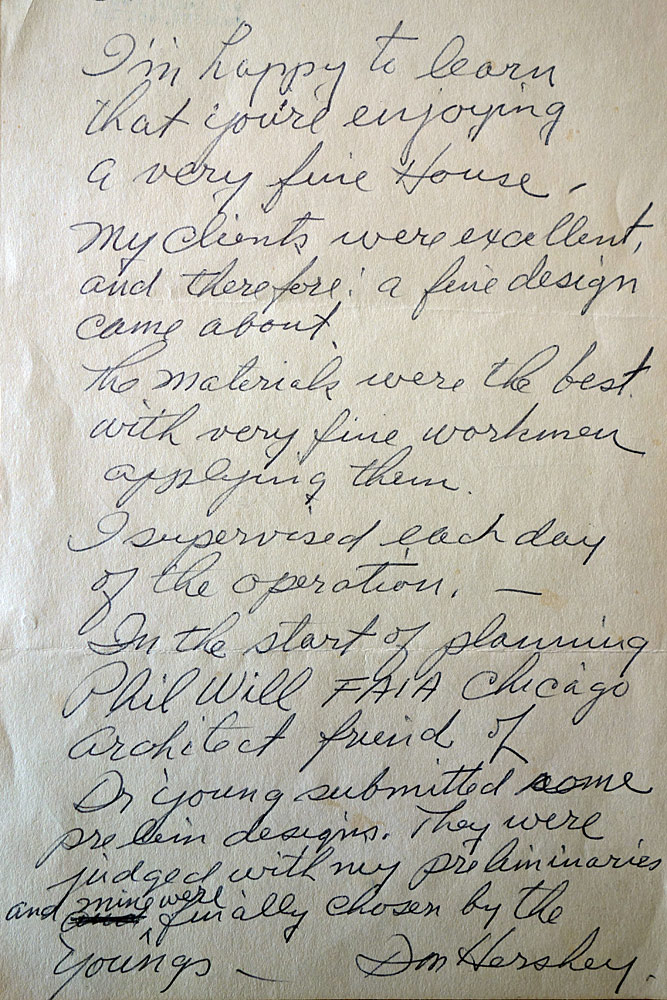 I'm happy to learn
that you're enjoying
a very fine House -
My clients were excellent,
and therefore: a fine design
came about.
The materials were the best
with very fine workmen
applying them.
I supervised each day
of the operation. —
In the start of planning
Phil Will FAIA Chicago
Architect friend of
Dr Young submitted some
prelim designs. They were
judged with my preliminaries
and mine were finally chosen by the
Youngs — Don Hershey.